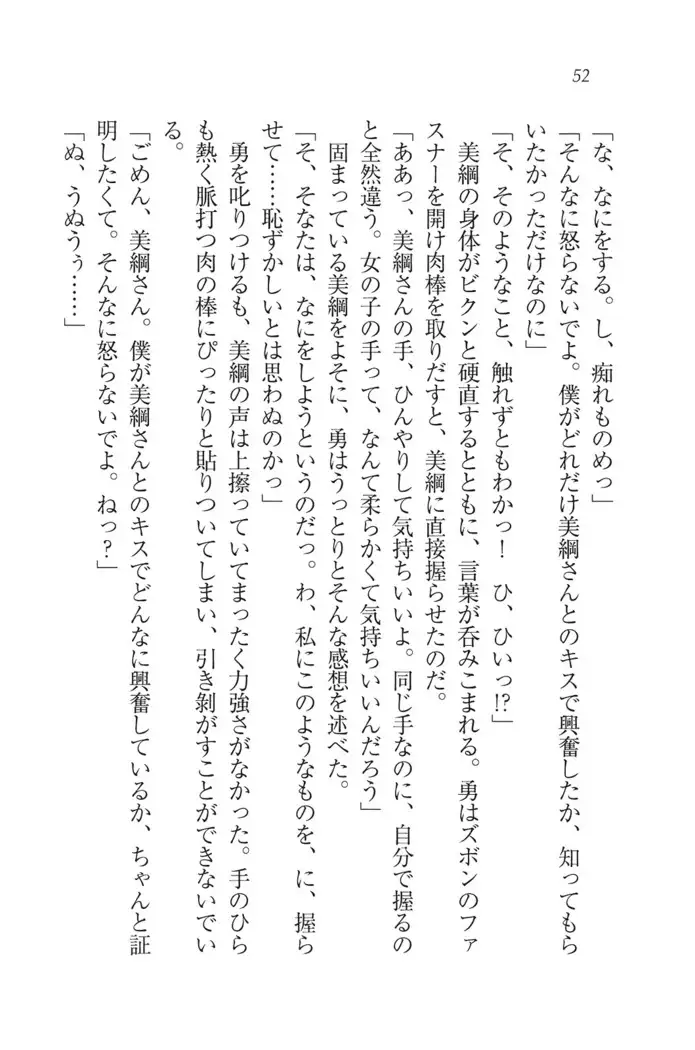 52
「な、なにをする。し、痴れものめっ」
「そんなに怒らないでよ。僕がどれだけ美綱さんとのキスで興奮したか、知ってもら
いたかっただけなのに」
「そ、そのようなこと、触れずともわかっ！　ひ、ひいっ!?」
　美綱の身体がビクンと硬直するとともに、言葉が呑みこまれる。勇はズボンのファ
スナーを開け肉棒を取りだすと、美綱に直接握らせたのだ。
「ああっ、美綱さんの手、ひんやりして気持ちいいよ。同じ手なのに、自分で握るの
と全然違う。女の子の手って、なんて柔らかくて気持ちいいんだろう」
　固まっている美綱をよそに、勇はうっとりとそんな感想を述べた。
「そ、そなたは、なにをしようというのだっ。わ、私にこのようなものを、に、握ら
せて……恥ずかしいとは思わぬのかっ」
　勇を叱りつけるも、美綱の声は上擦っていてまったく力強さがなかった。手のひら
も熱く脈打つ肉の棒にぴったりと貼りついてしまい、引き剥がすことができないでい
る。
「ごめん、美綱さん。僕が美綱さんとのキスでどんなに興奮しているか、ちゃんと証
明したくて。そんなに怒らないでよ。ねっ？」
「ぬ、うぬうぅ……」